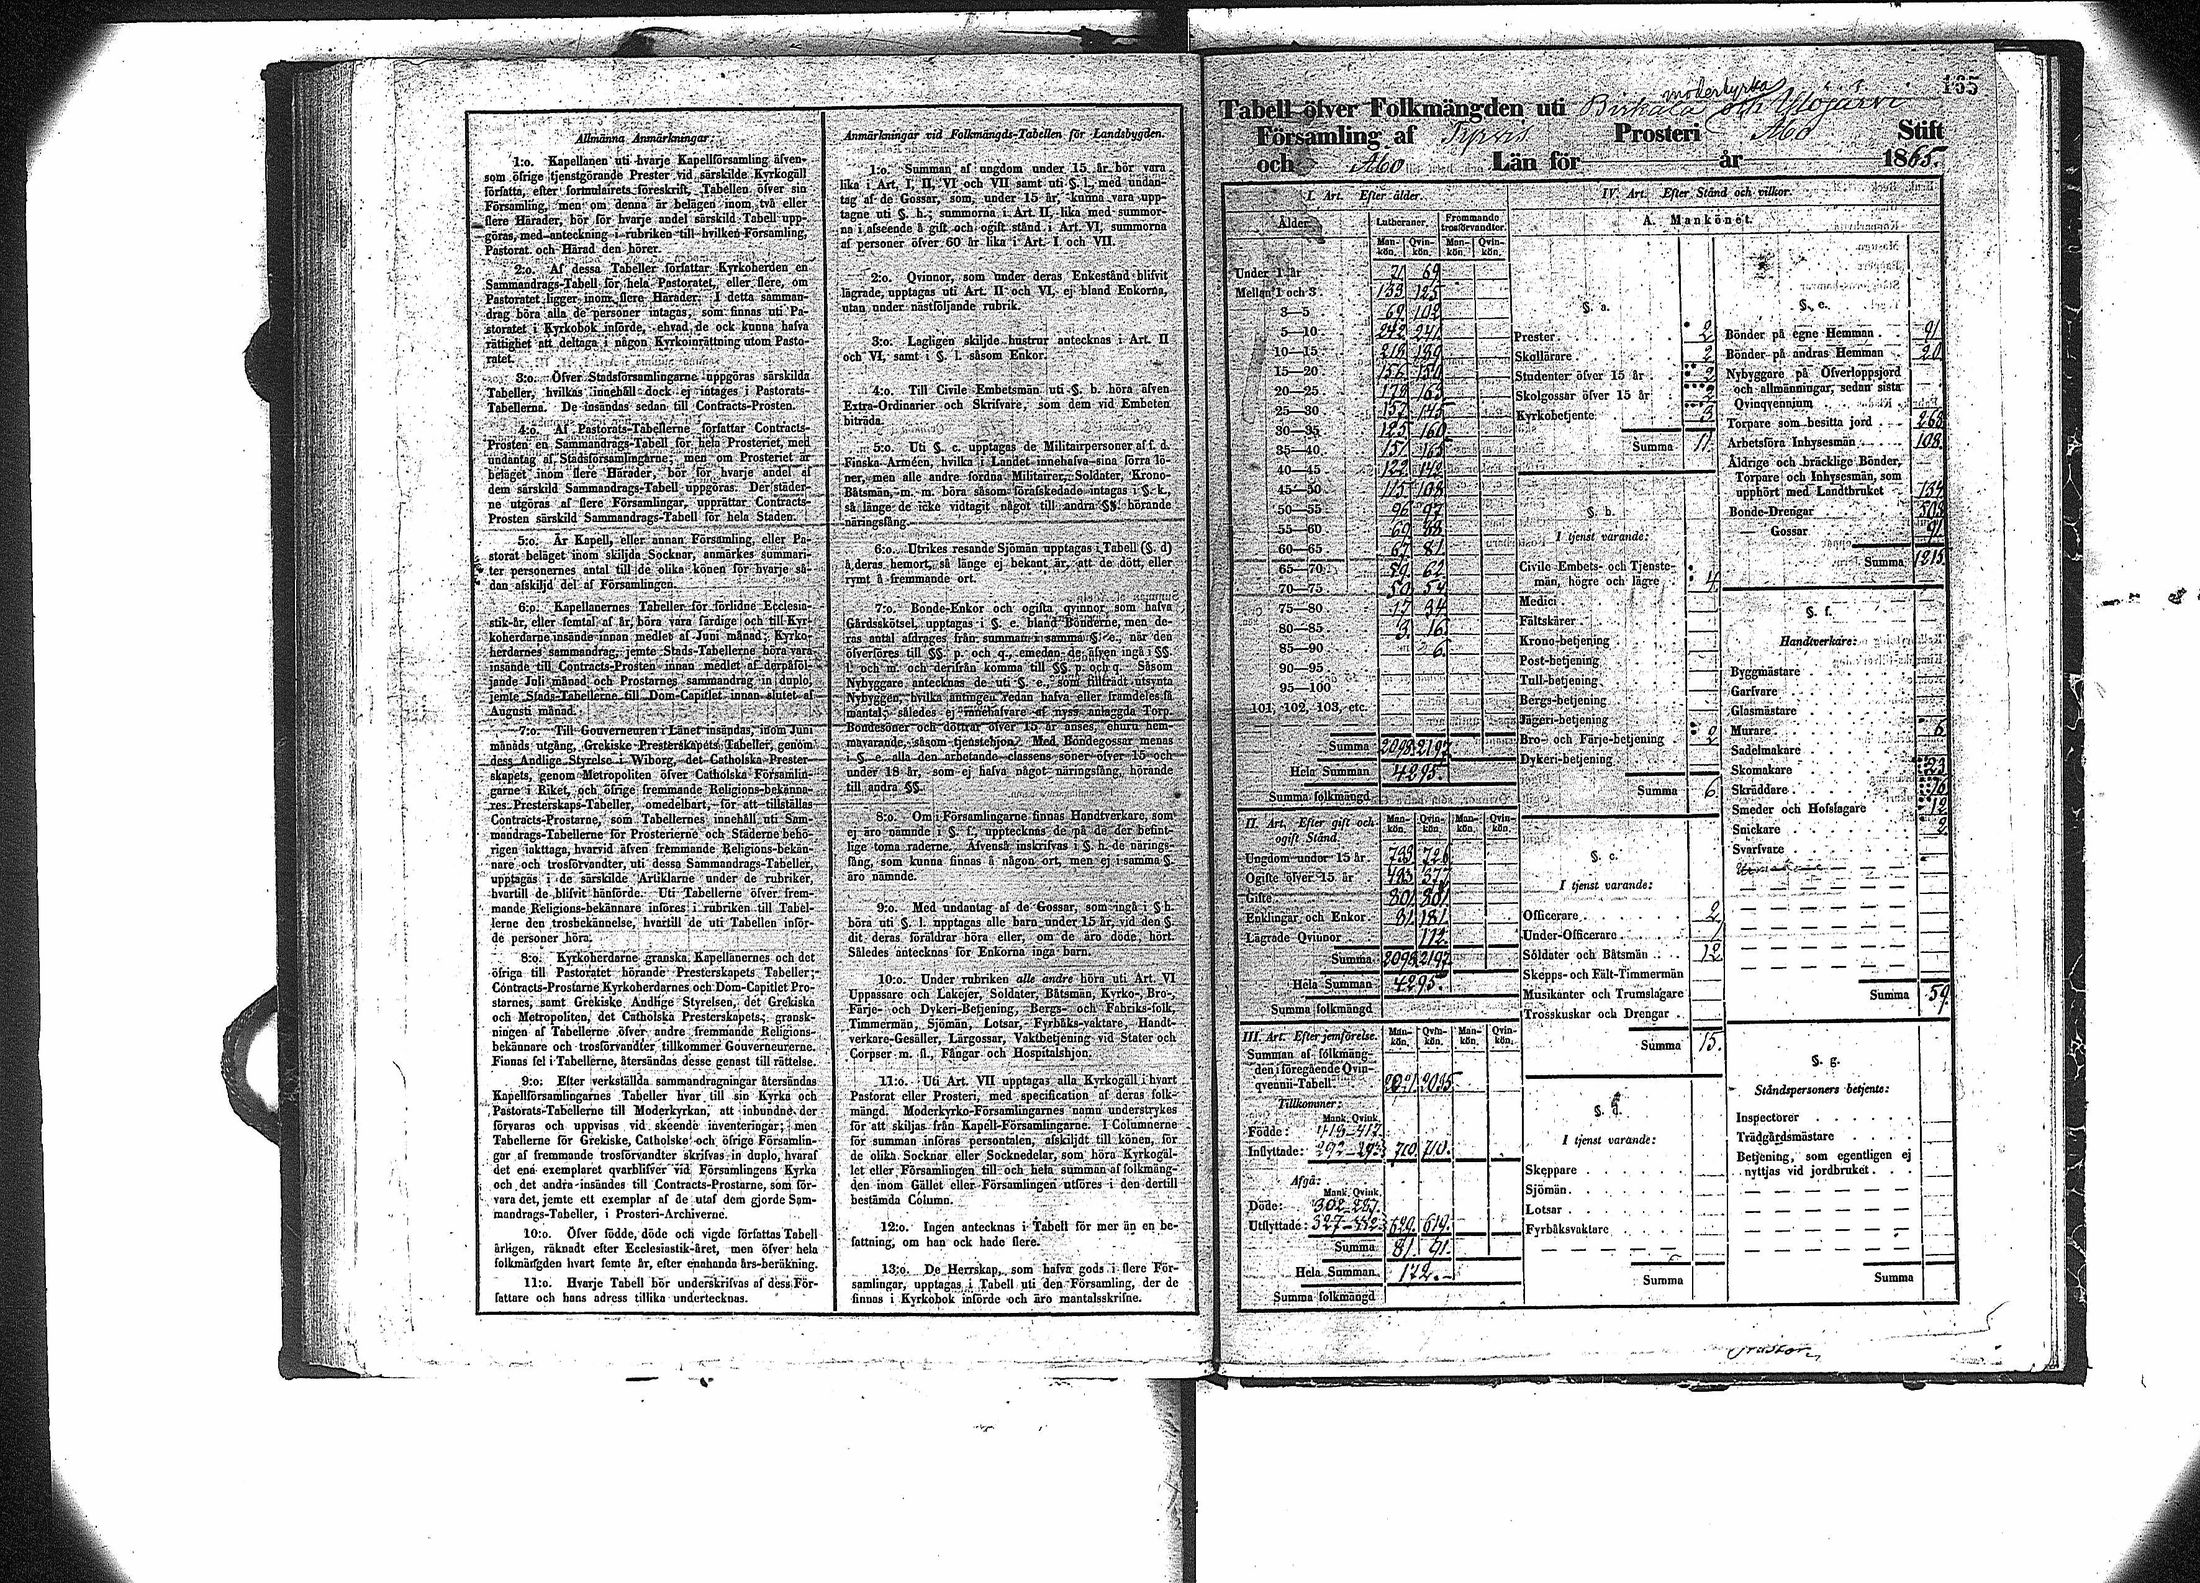 Allmänna Anmärkningar.
1:o. Kapellanen uti hvarje Kapellförsamling äfven-
som öfrige tjenstgörande Prester vid särskilde Kyrkogäll
författa, efter formulairets föreskrift, Tabellen öfver sin
Församling, men om denna är belägen inom två eller
flere Härader, bör för hvarje andel särskild Tabell upp-
göras, med anteckning i rubriken till hvilken Församling,
Pastorat och Härad den hörer.
2:o. Af dessa Tabeller författar Kyrkoherden en
Sammandrags-Tabell för hela Pastoratet, eller flere, om
Pastoratet ligger inom flere Härader. I detta samman-
drag böra alla de personer intagas, som finnas uti Pa-
storatet i Kyrkobok införde, ehvad de ock kunna hafva
rättighet att deltaga i någon Kyrkoinrättning utom Pasto-
ratet.
3:o. Öfver Stadsförsamlingarne uppgöras särskilda
Tabeller, hvilkas innehåll dock ej intages i Pastorats-
Tabellerna. De insändas sedan till Contracts-Prosten.
4:o. Af Pastorats-Tabellerne författar Contracts-
Prosten en Sammandrags-Tabell för hela Prosteriet, med
undantag af Stadsförsamlingarne; men om Prosteriet är
beläget inom flere Härader, bör för hvarje andel af
dem särskild Sammandrags-Tabell uppgöras. Der städer-
ne utgöras af flere Församlingar, upprättar Contracts-
Prosten särskild Sammandrags-Tabell för hela Staden.
5:o. Är Kapell, eller annan Församling, eller Pa-
storat beläget inom skiljda Socknar, anmärkes summari-
ter personernes antal till de olika könen för hvarje så-
dan afskiljd del af Församlingen.
6:o. Kapellanernes Tabeller för förlidne Ecclesia-
stik-år, eller femtal af år, böra vara färdige och till Kyr-
koherdarne insände innan medlet af Juni månad; Kyrko-
herdarnes sammandrag, jemte Stads-Tabellerne böra vara
insände till Contracts-Prosten innan medlet af derpåföl-
jande Juli månad och Prostarnes sammandrag in duplo,
jemte Stads-Tabellerne till Dom-Capitlet innan slutet af
Augusti månad.
7:o. Till Gouverneuren i Länet insändas, inom Juni
månads utgång, Grekiske Presterskapets Tabeller, genom
dess Andlige Styrelse i Wiborg, det Catholska Prester-
skapets, genom Metropoliten öfver Catholska Församlin-
garne i Riket, och öfrige fremmande Religions-bekänna-
res Presterskaps-Tabeller, omedelbart, för att tillställas
Contracts-Prostarne, som Tabellernes innehåll uti Sam-
mandrags-Tabellerne för Prosterierne och Städerne behö-
rigen iakttaga, hvarvid äfven fremmande Religions-bekän-
nare och trosförvandter, uti dessa Sammandrags-Tabeller,
upptagas i de särskilde Artiklarne under de rubriker,
hvartill de blifvit hänförde. Uti Tabellerne öfver frem-
mande Religions-bekännare införes i rubriken till Tabel-
lerne den trosbekännelse, hvartill de uti Tabellen inför-
de personer höra.
8:o. Kyrkoherdarne granska Kapellanernes och det
öfriga till Pastoratet hörande Presterskapets Tabeller;
Contracts-Prostarne Kyrkoherdarnes och Dom-Capitlet Pro-
starnes, samt Grekiske Andlige Styrelsen, det Grekiska
och Metropoliten, det Catholska Presterskapets; gransk-
ningen af Tabellerne öfver andre fremmande Religions-
bekännare och trosförvandter tillkommer Gouverneurerne.
Finnas fel i Tabellerne, återsändas desse genast till rättelse.
9:o. Efter verkställda sammandragningar återsändas
Kapellförsamlingarnes Tabeller hvar till sin Kyrka och
Pastorats-Tabellerne till Moderkyrkan, att inbundne der
förvaras och uppvisas vid skeende inventeringar; men
Tabellerne för Grekiske, Catholske och öfrige Försam­lin-
gar af fremmande trosförvandter skrifvas in duplo, hvaraf
det ena exemplaret qvarblifver vid Församlingens Kyrka
och det andra insändes till Contracts-Prostarne, som för-
vara det, jemte ett exemplar af de utaf dem gjorde Sam-
mandrags-Tabeller, i Prosteri-Archiverne.
10:o. Öfver födde, döde och vigde författas Tabell
årligen, räknadt efter Ecclesiastik-året, men öfver hela
folkmängden hvart femte år, efter enahanda års-beräkning.
11:o. Hvarje Tabell bör underskrifvas af dess För-
fattare och hans adress tillika undertecknas.
Anmärkningar vid Folkmängds-Tabellen för Landsbygden.
1:o. Summan af ungdom under 15 år bör vara
lika i Art. I, II, VI och VII samt uti §. l., med undan-
tag af de Gossar, som, under 15 år, kunna vara upp-
tagne uti §. h.; summorna i Art. II, lika med summor-
na i afseende å gift och ogift stånd i Art. VI, summorna
af personer öfver 60 år lika i Art. I och VII.
2:o. Qvinnor, som under deras Enkestånd blifvit
lägrade, upptagas uti Art. II och VI, ej bland Enkorna,
utan under nästföljande rubrik.
3:o. Lagligen skiljde hustrur antecknas i Art. II
och VI, samt i §. l. såsom Enkor.
4:o. Till Civile Embetsmän uti §. b. höra äfven
Extra-Ordinarier och Skrifvare, som dem vid Embeten
biträda.
5:o. Uti §. c. upptagas de Militairpersoner af f. d.
Finska Arméen, hvilka i Landet innehafva sina förra lö-
ner, men alle andre fordna Militairer, Soldater, Krono-
Båtsmän, m. m. böra såsom förafskedade intagas i §. k.,
så länge de icke vidtagit något till andra §§. hörande
näringsfång.
6:o. Utrikes resande Sjömän upptagas i Tabell (§. d)
å deras hemort, så länge ej bekant är, att de dött, eller
rymt å fremmande ort.
7:o. Bonde-Enkor och ogifta qvinnor som hafva
Gårdsskötsel, upptagas i §. e. bland Bönderne, men de-
ras antal afdrages från summan i samma §. e., när den
öfverföres till §§. p. och q., emedan de äfven ingå i §§.
l. och m. och derifrån komma till §§. p. och q. Såsom
Nybyggare antecknas de uti §. e., som tillträdt utsynta
Nybyggen, hvilka antingen redan hafva eller framdeles få
mantal; således ej innehafvare af nyss anlaggda Torp.
Bondesöner och döttrar öfver 15 år anses, ehuru hem-
mavarande, såsom tjenstehjon. Med Bondegossar menas
i §. e. alla den arbetande classens söner öfver 15 och
under 18 år, som ej hafva något näringsfång, hörande
till andra §§.
8:o. Om i Församlingarne finnas Handtverkare, som
ej äro nämnde i §. f., uppteckas de på de der befint-
lige toma raderne. Äfvenså inskrifvas i §. h. de närings-
fång, som kunna finnas å någon ort, men ej i samma §.
äro nämnde.
9:o. Med undantag af de Gossar, som ingå i § h.
böra uti §. l. upptagas alle barn under 15 år, vid den §.
dit deras föräldrar höra eller, om de äro döde, hört.
Således antecknas för Enkorna inga barn.
10:o. Under rubriken alle andre höra uti Art. VI
Uppassare och Lakejer, Soldater, Båtsmän, Kyrko-, Bro-,
Färje- och Dykeri-Betjening, Bergs- och Fabriks-folk,
Timmermän, Sjömän, Lotsar, Fyrbåks-vaktare, Handt-
verkare-Gesäller, Lärgossar, Vaktbetjening vid Stater och
Corpser m. fl., Fångar och Hospitalshjon.
11:o. Uti Art. VII upptagas alla Kyrkogäll i hvart
Pastorat eller Prosteri, med specification af deras folk-
mängd. Moderkyrko-Församlingarnes namn understrykes
för att skiljas från Kapell-Församlingarne. I Columnerne
för summan införas persontalen, afskiljdt till könen, för
de olika Socknar eller Socknedelar, som höra Kyrkogäl-
let eller Församlingen till och hela summan af folkmäng-
den inom Gället eller Församlingen utföres i den dertill
bestämda Column.
12:o. Ingen antecknas i Tabell för mer än en be-
fattning, om han ock hade flere.
13:o. De Herrskap, som hafva gods i flere För-
samlingar, upptagas i Tabell uti den Församling, der de
finnas i Kyrkobok införde och äro mantalsskrifne.
165
moderkyrka
Tabell öfver Folkmängden uti Birkala och Ylöjärvi
Församling af Prosteri Åbo Stift
och Åbo Län för år 1865.
I. Art. Efter ålder.
Ålder Lutheraner. Frommande trosförvandter.
Man-kön. Qvin-kön. Man-kön. Qvin-kön.
Under 1 år 69
Mellan 1 och 3 133 125
3—5 69 102
5—10 242 241
10—15 218 189
15—20 156 150
20—25 179 163
25—30 157 145
30—35 125 160
35—40 157 165
40—45 122 142
45—50 115 108
50—55 96 97
55—60 60 88
60—65 67 81
65—70 59 62
70—75 50 54
75—80 17 34
80—85 3 16
85—90 6.
90—95
95—100
101, 102, 103, etc.
Summa 2098 2197
Hela Summan 4295
Summa folkmängd
II. Art. Efter gift och ogift Stånd. Man-kön. Qvin-kön. Man-kön. Qvin-kön.
Ungdom under 15 år 733 726
Ogifte öfver 15 år 483 377
Gifte 801 801
Enklingar och Enkor 81 181
Lägrade Qvinnor 112
Summa 2098 2197
Hela Summan 4295
Summa folkmängd
III. Art. Efter jemförelse. Man-kön. Qvin-kön. Man-kön. Qvin-kön.
Summan af folkmäng-
den i föregående Qvin-
qvennii-Tabell 2035
Tillkommer:
Mank. Qvink.
Födde: 418—417
Inflyttade: 292—293 710 710.
Afgå:
Mank. Qvink.
Döde: 302—287
Utflyttade: 327—332 629. 619.
Summa 81. 91.
Hela Summan 172.
Summa folkmängd
IV. Art. Efter Stånd och vilkor.
A. Mankönet.
§. a.
Prester 2
Skollärare 2
Studenter öfver 15 år 2
Skolgossar öfver 15 år 2
Kyrkobetjente 3
Summa 11.
§. b.
I tjenst varande:
Civile Embets- och Tjenste-
män, högre och lägre 4.
Medici
Fältskärer
Krono-betjening
Post-betjening
Tull-betjening
Bergs-betjening
Jägeri-betjening
Bro- och Färje-betjening 2
Dykeri-betjening
Summa 6.
§. c.
I tjenst varande:
Officerare 2
Under-Officerare 1
Soldater och Båtsmän 12
Skepps- och Fält-Timmermän
Musikanter och Trumslagare
Trosskuskar och Drengar
Summa 15.
I tjenst varande:
Skeppare
Sjömän
Lotsar
Fyrbåksvaktare
Summa
§. e.
Bönder på egne Hemman 91
Bönder på andras Hemman 20
Nybyggare på Öfverloppsjord
och allmänningar, sedan sista
Qvinqvennium
Torpare som besitta jord 268
Arbetsföra Inhysesmän 108
Äldrige och bräcklige Bönder,
Torpare och Inhysesmän, som
upphört med Landtbruket 134
Bonde-Drengar 503
— Gossar 91
Summa 1215
§. f.
Handtverkare:
Byggmästare
Garfvare
Glasmästare
Murare 6
Sadelmakare
Skomakare 23
Skräddare 16
Smeder och Hofslagare 12
Snickare 2
Svarfvare
Summa 59
§. g.
Ståndspersoners betjente:
Inspectorer
Trädgårdsmästare
Betjening, som egentligen ej
nyttjas vid jordbruket
Summa